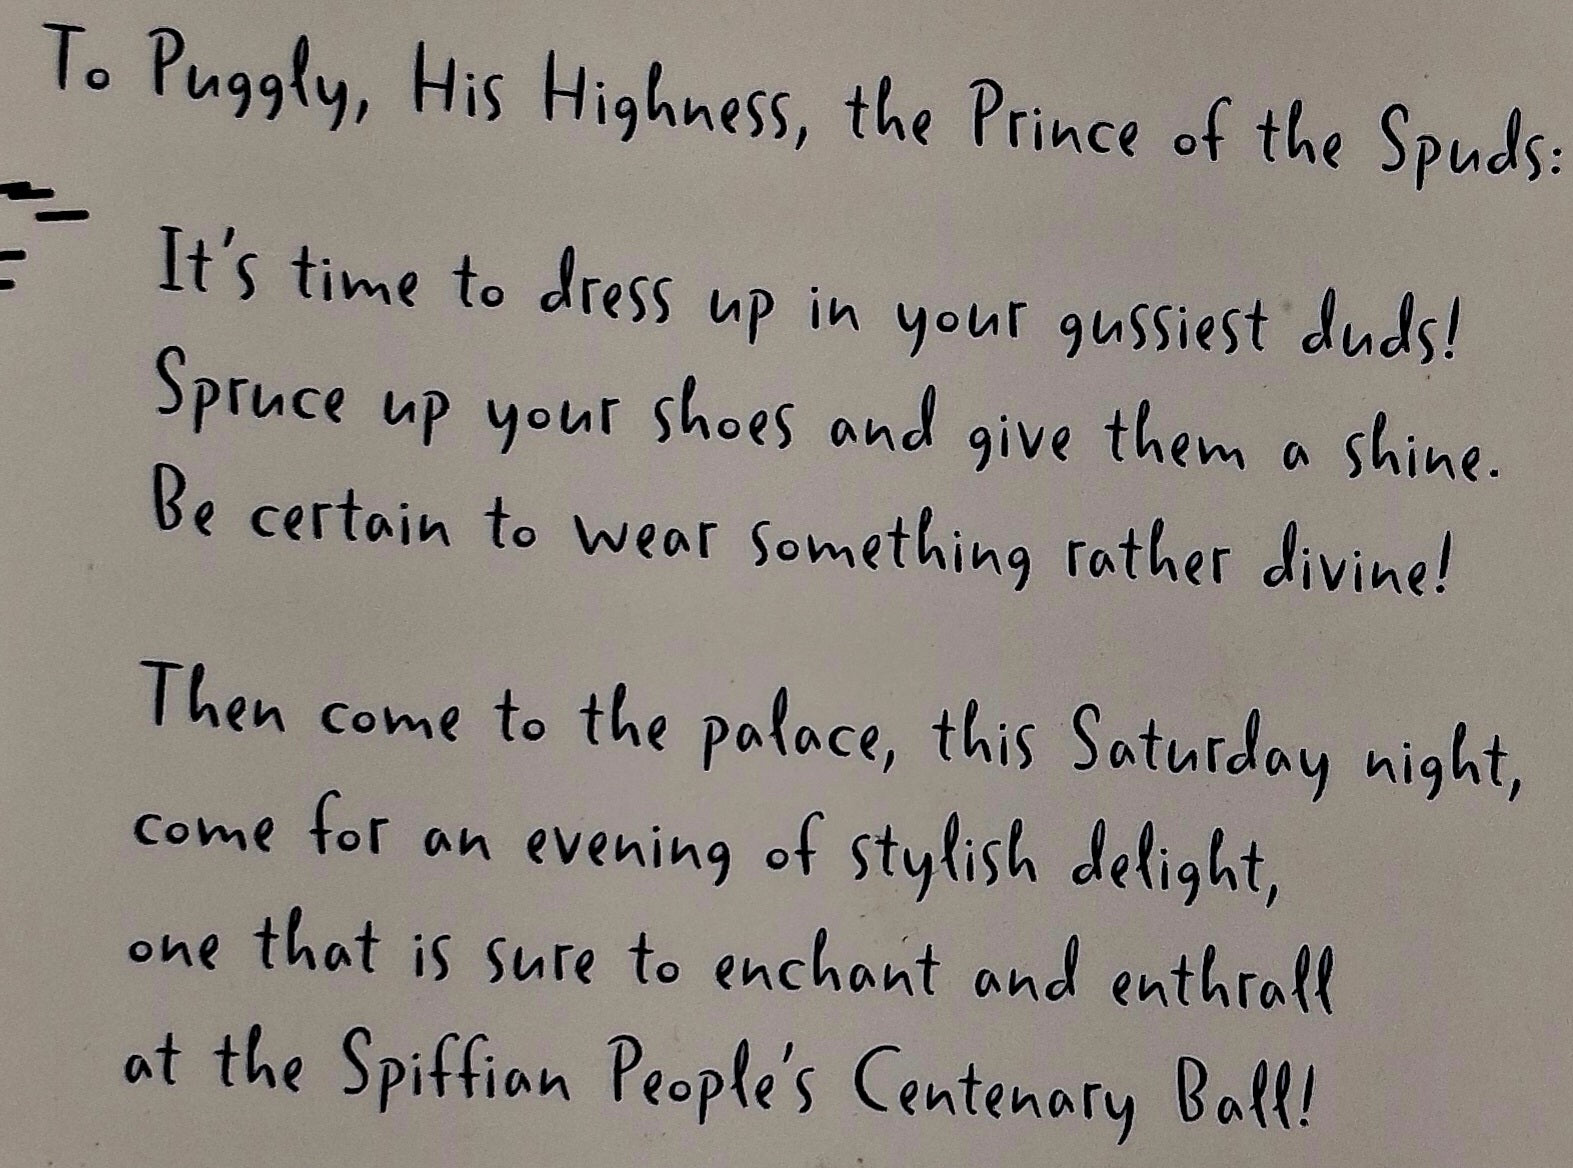 To Puggly, His Highness, the Prince of the Spuds:
It's time to dress up in your gussiest duds!
Spruce up your shoes and give them a shine.
Be certain to wear something rather divine!
Then come to the palace, this Saturday night,
come for an evening of stylish delight,
one that is sure to enchant and enthrall
at the Spiffian People's Centenary Ball!